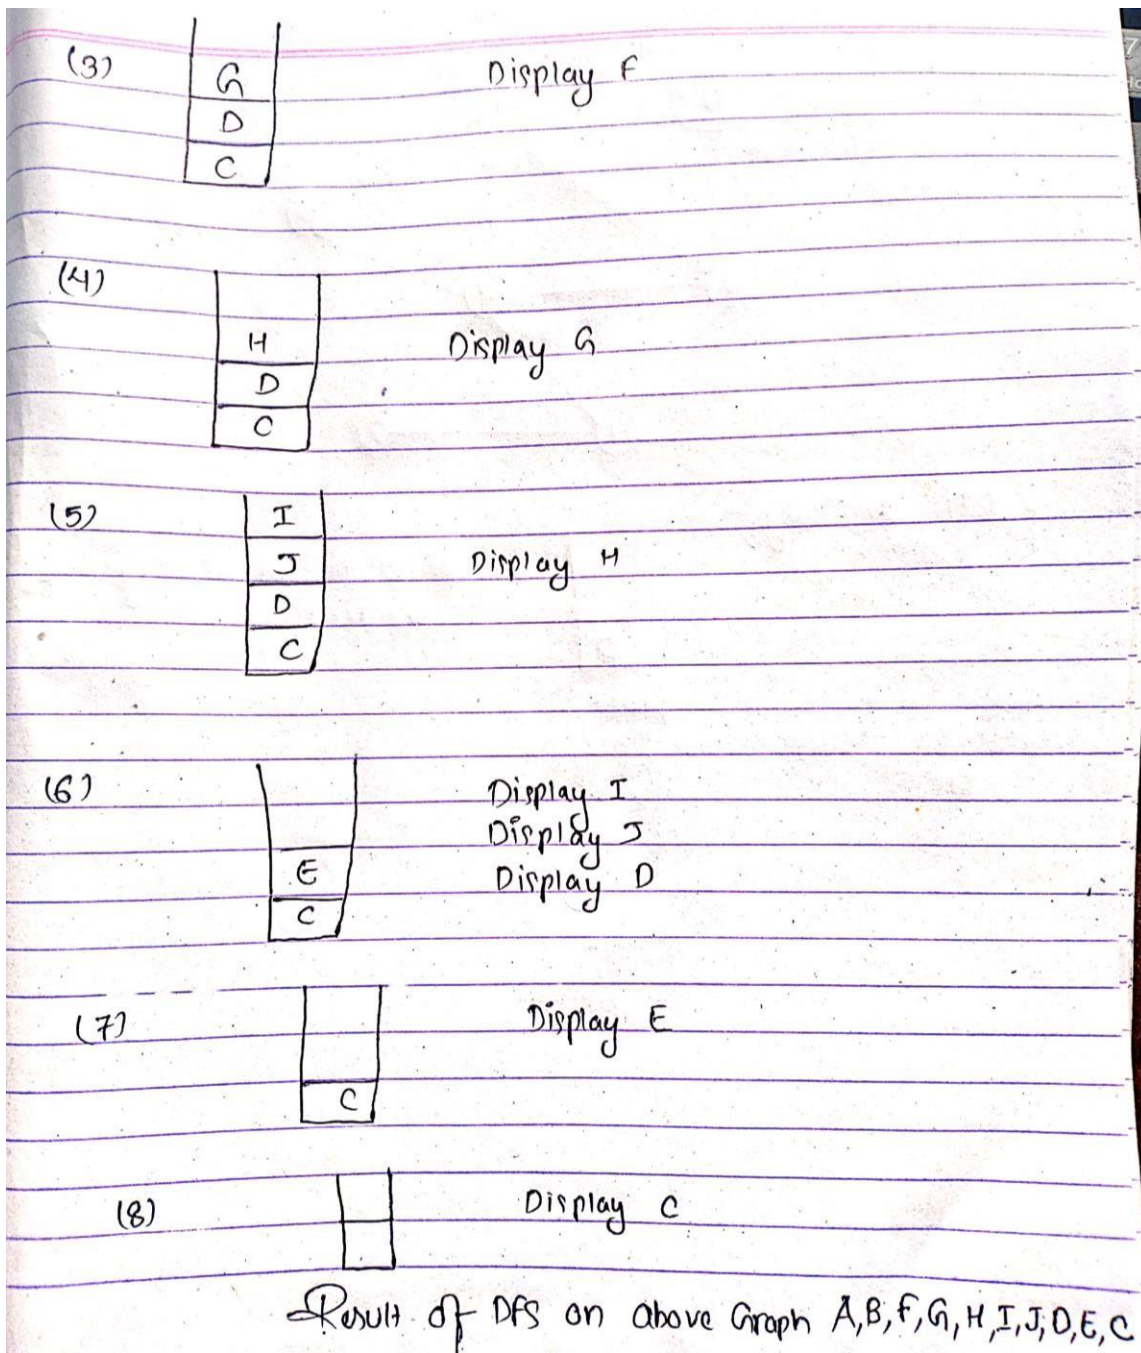 (3)
G
Display F
D
C
(4)
H
Display G
D
C
(5)
I
J
Display H
D
C
(6)
Display I
Display J
E
Display D
C
(7)
Display E
C
(8)
Display C
Result of DFS on above Graph A,B,F,G,H,I,J,D,E,C